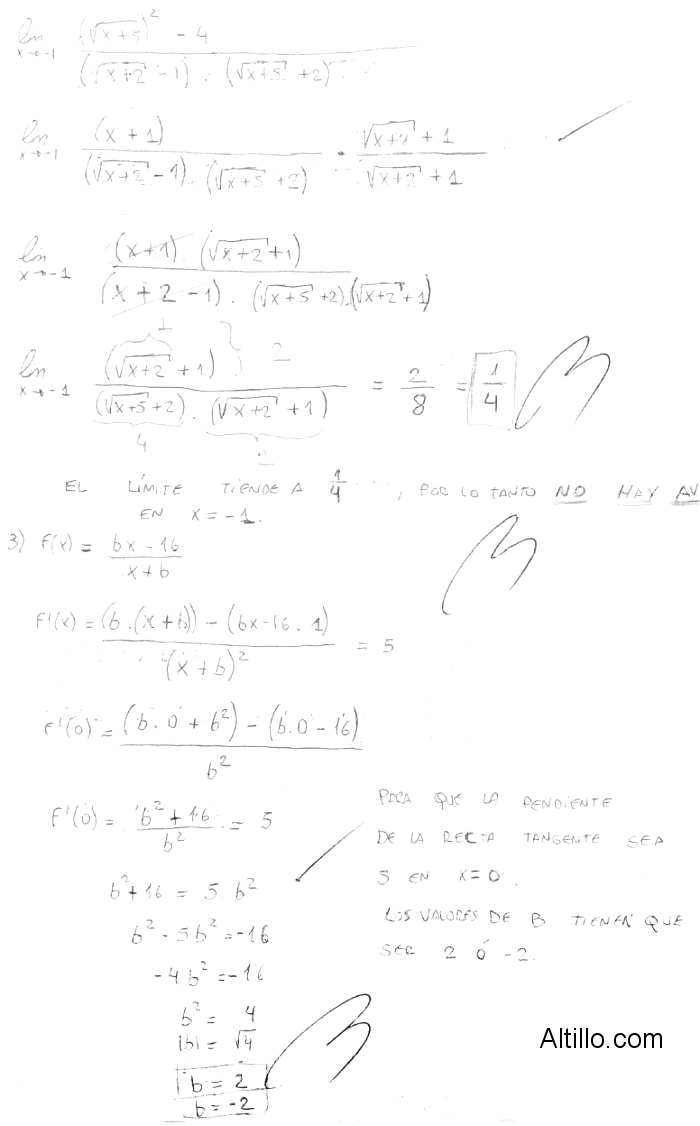 lim x→-1 (√x+5)² - 4 / (√x+2 - 1) . (√x+5 + 2)
lim x→-1 (x + 1) / (√x+2 - 1) . (√x+5 + 2) . √x+2 + 1 / √x+2 + 1
lim x→-1 (x+1) (√x+2 + 1) / (x + 2 - 1) . (√x+5 + 2) . (√x+2 + 1)
1
2
lim x→-1 (√x+2 + 1) / (√x+5 + 2) . (√x+2 + 1) = 2/8 = 1/4
4 2
EL LÍMITE TIENDE A 1/4 , POR LO TANTO NO HAY AV
EN X = -1.
3) F(x) = bx - 16 / x + b
F'(x) = (b . (x + b)) - (bx - 16 . 1) / (x + b)² = 5
F'(0) = (b . 0 + b²) - (b . 0 - 16) / b²
F'(0) = b² + 16 / b² = 5
b² + 16 = 5 b²
b² - 5b² = -16
-4b² = -16
b² = 4
|b| = √4
b = 2
b = -2
PARA QUE LA PENDIENTE
DE LA RECTA TANGENTE SEA
5 EN X = 0.
LOS VALORES DE B TIENEN QUE
SER 2 Ó -2.
Altillo.com